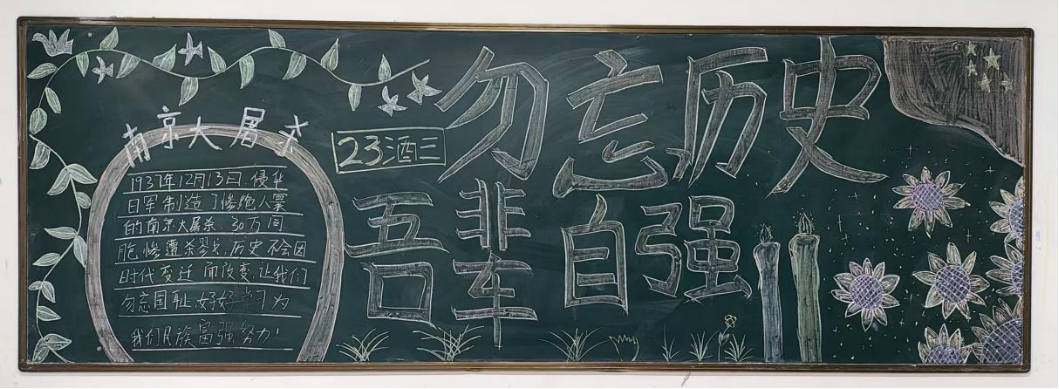 勿忘历史
吾辈自强
23酒三
南京大屠杀
1937年12月13日.侵华
日军制造了惨绝人寰
的南京大屠杀.30万同
胞惨遭杀戮,历史不会因
时代变迁而改变,让我们
勿忘国耻,好好学习为
我们民族富强努力!